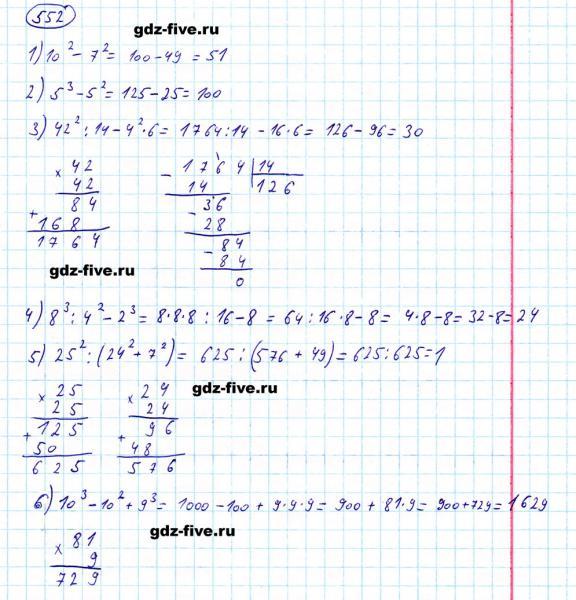 552
gdz-five.ru
1) 10² - 7² = 100 - 49 = 51
2) 5³ - 5² = 125 - 25 = 100
3) 42² : 14 - 4² · 6 = 1764 : 14 - 16 · 6 = 126 - 96 = 30
× 42
42
84
+ 168
1764
- 1764 | 14
14 | 126
36
- 28
84
- 84
0
gdz-five.ru
4) 8³ : 4² - 2³ = 8·8·8 : 16 - 8 = 64 : 16 · 8 - 8 = 4·8 - 8 = 32 - 8 = 24
5) 25² : (24² + 7²) = 625 : (576 + 49) = 625 : 625 = 1
gdz-five.ru
× 25
25
+ 125
50
625
× 24
24
+ 96
48
576
6) 10³ - 10² + 9³ = 1000 - 100 + 9·9·9 = 900 + 81·9 = 900 + 729 = 1629
gdz-five.ru
× 81
9
729